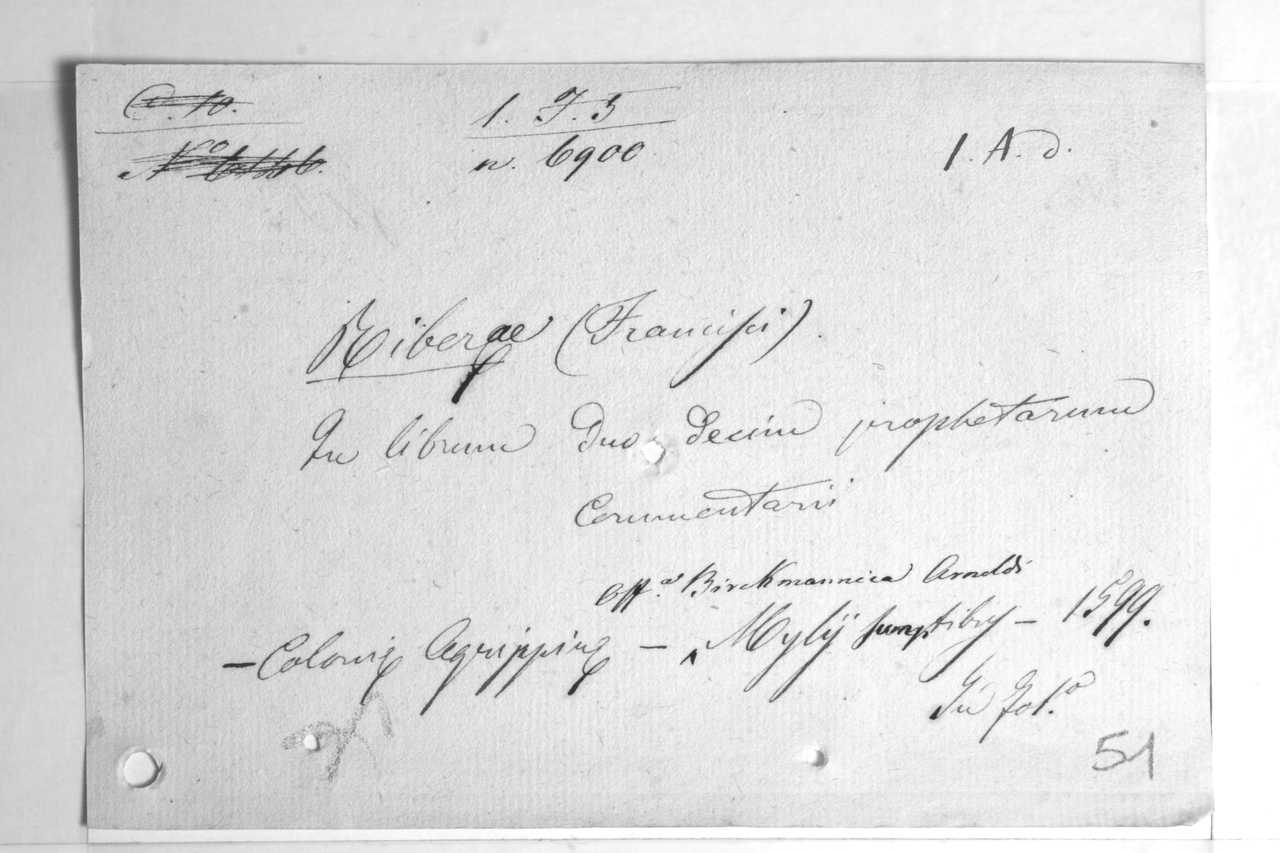 C. 10.
1. F. 5
1. A. d.
n. 6900
Riberae (Francisci)
In librum Duo decim prophetarum
Commentarii
Off.ª Birckmannica Arnoldi
– Colonię Agrippinę – ^ Mylij sumptibus – 1599.
In fol.º
51